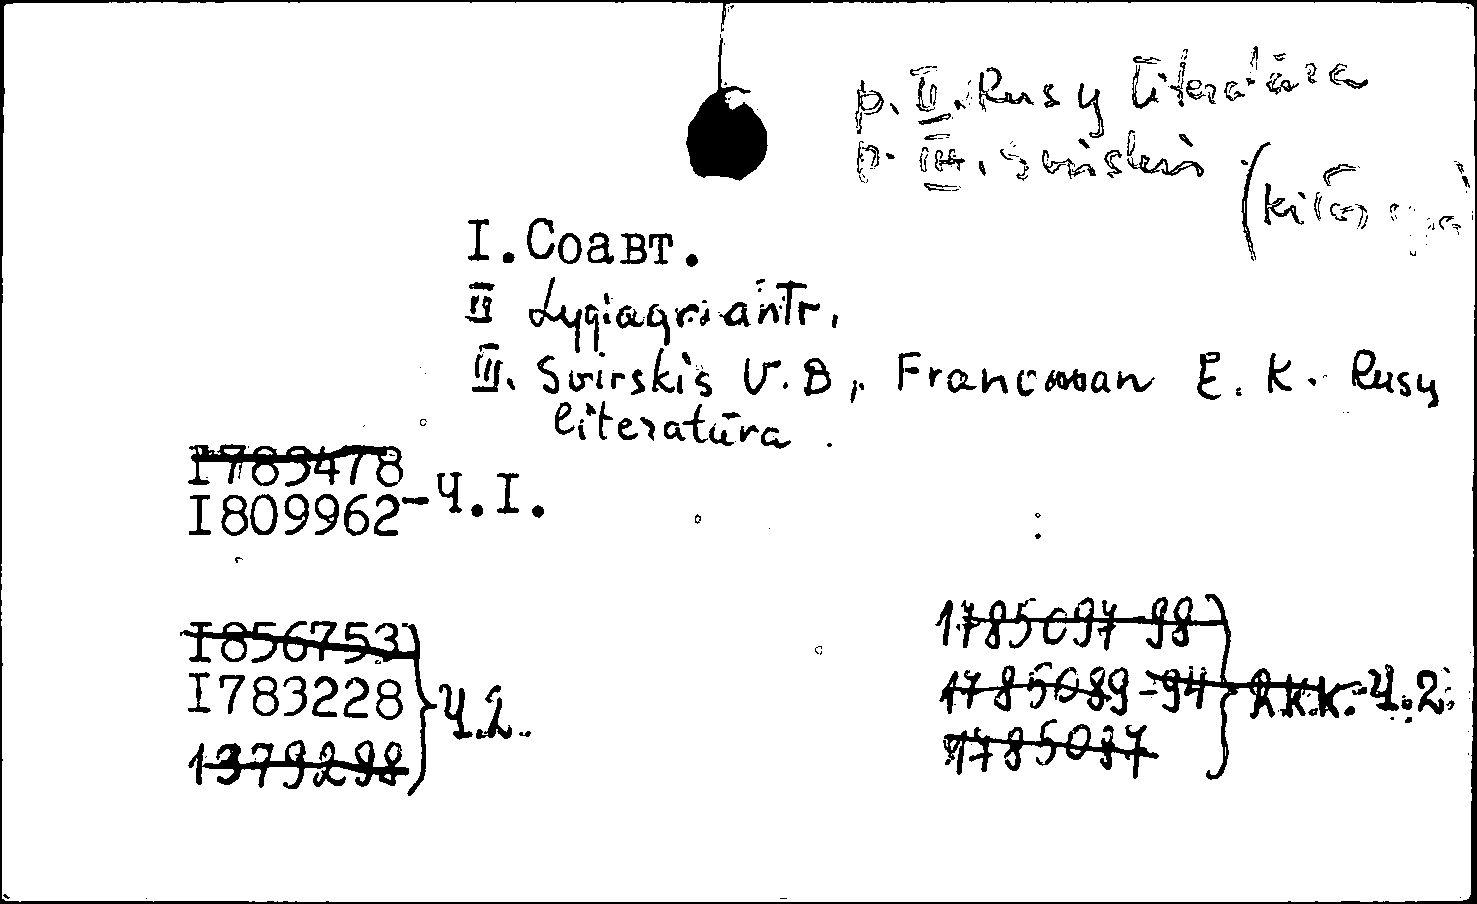 p. II. Rusų literatūra
p. III. Svirskis
(kitoj
I.Соавт.
II Lygiagr. antr.
III. Svirskis V.B., Francman E. K. Rusų
literatūra.
I783478
I809962 -Ч.I.
I856753
I783228 Ч.2.
1379298
1785097-98
1785089-94 R.K.K.-Ч.2.
1785087